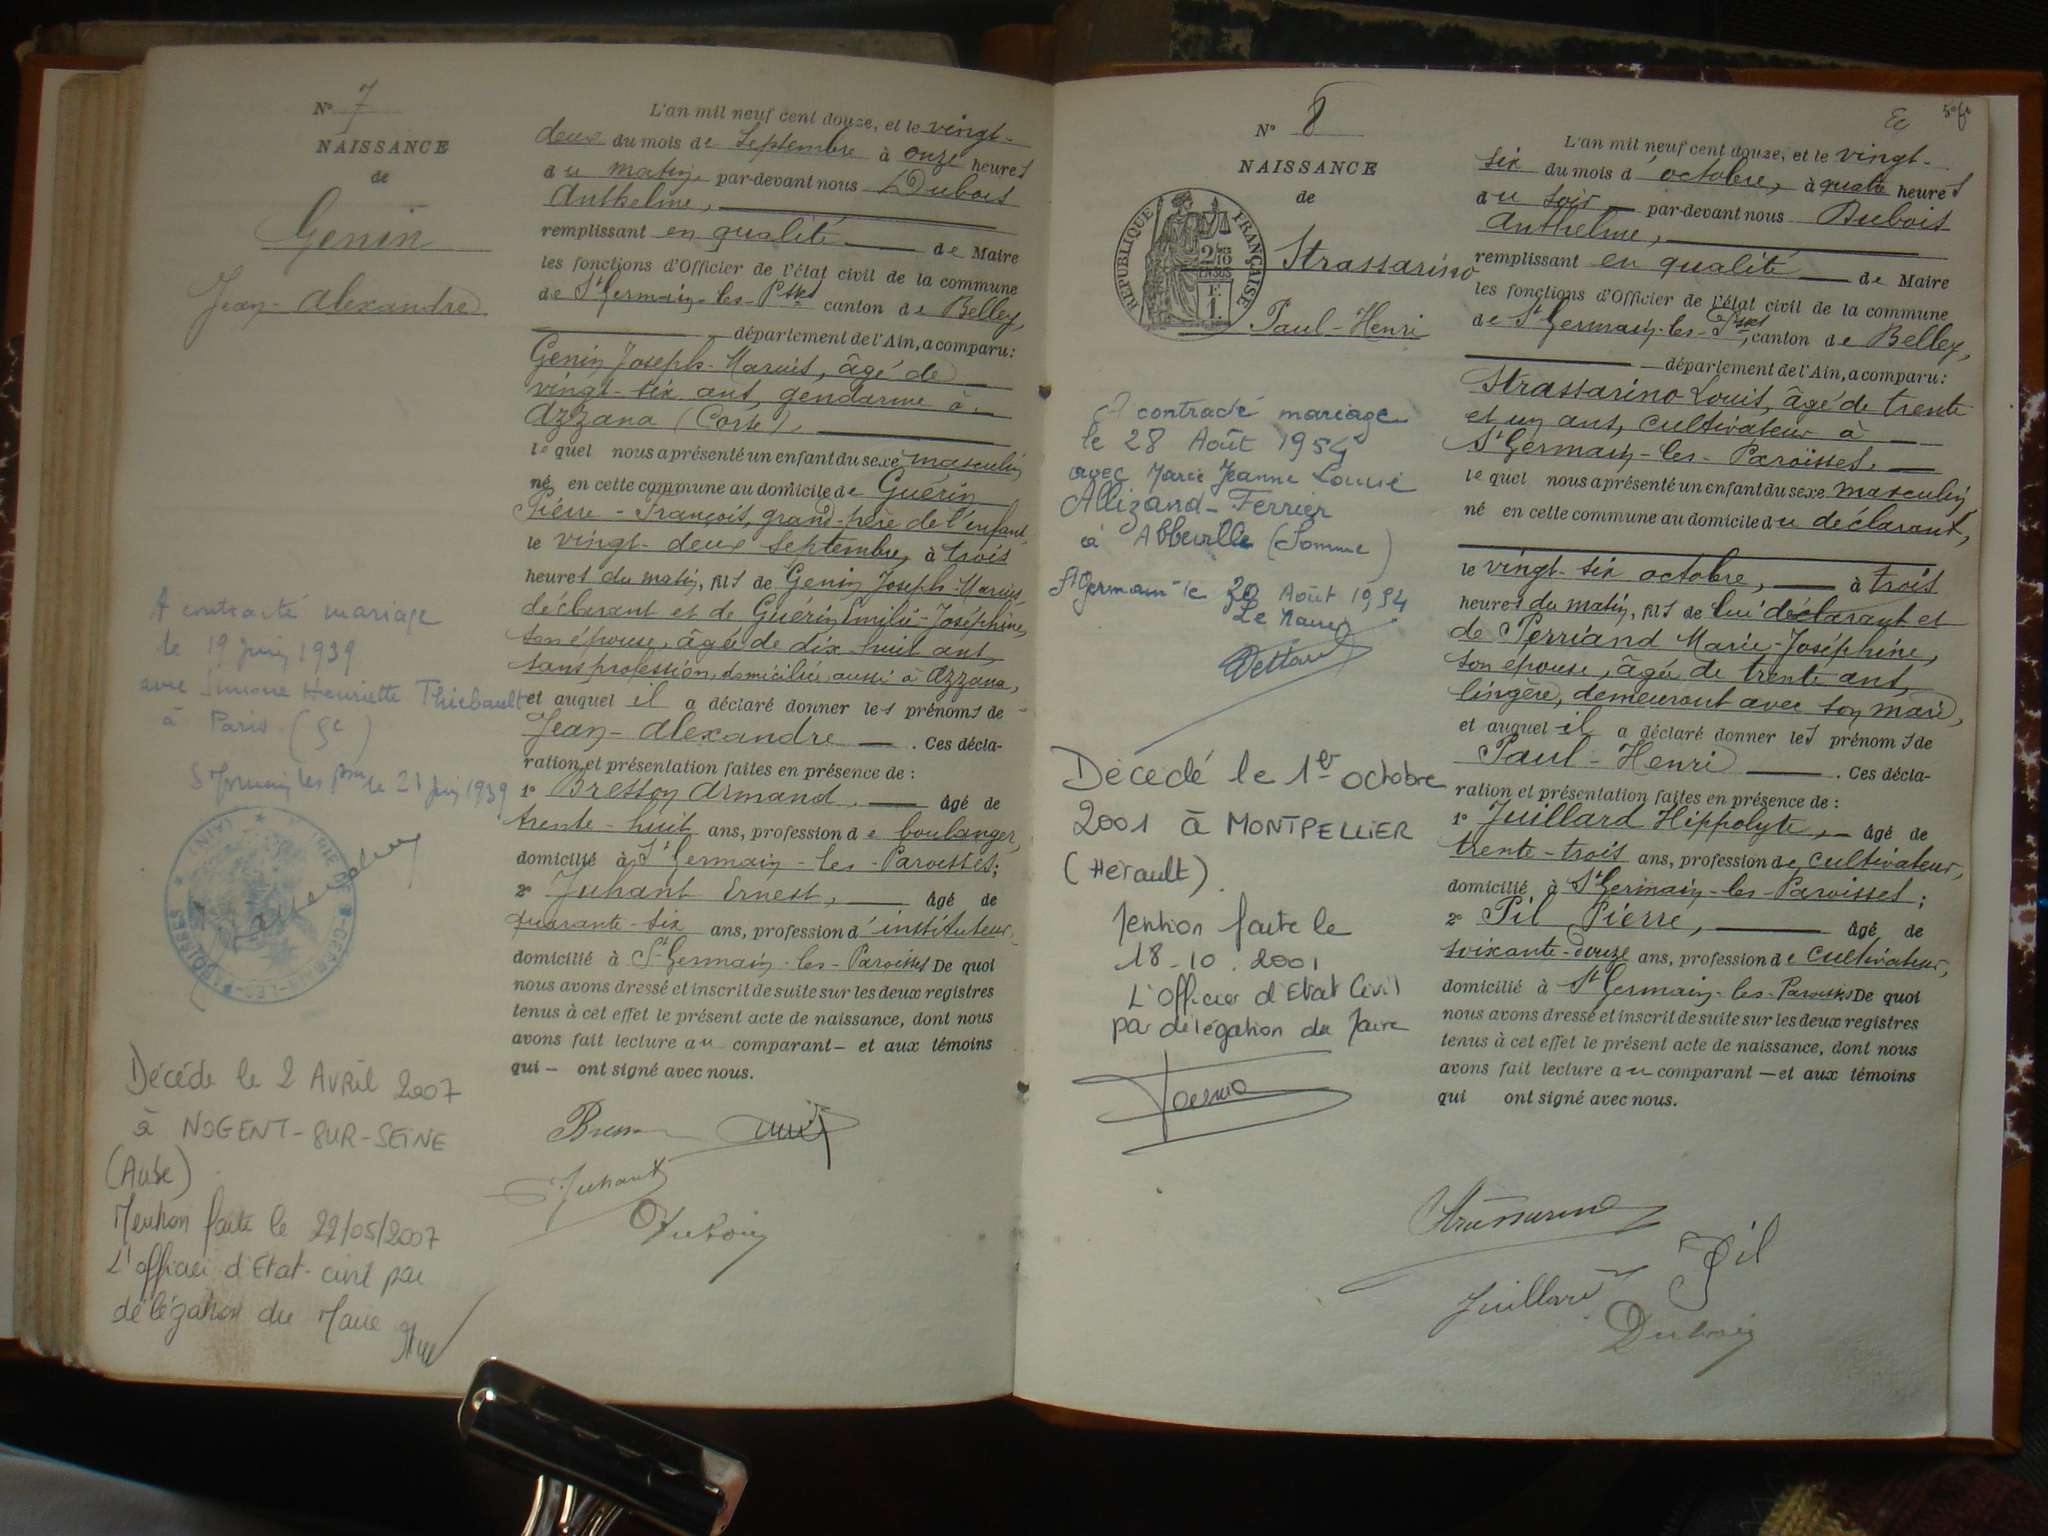 N° 7
NAISSANCE
de
Genin
Jean-Alexandre
A contracté mariage
le 19 Juin 1939
avec Simone Henriette Thiébault
à Paris (5e)
St Germain les Pses le 21 Juin 1939
Décédé le 2 AVRIL 2007
à NOGENT-SUR-SEINE
(Aube)
Mention faite le 22/05/2007
L'officier d'Etat-civil par
délégation du Maire
L'an mil neuf cent douze, et le vingt-
deux du mois de Septembre à onze heures
du matin, par-devant nous Dubois
Anthelme,
remplissant en qualité de Maire
les fonctions d'Officier de l'état civil de la commune
de St Germain-les-Pses canton de Belley,
département de l'Ain, a comparu:
Genin Joseph-Marius, âgé de
vingt-six ans, gendarme à
Azzana (Corse),
lequel nous a présenté un enfant du sexe masculin
né en cette commune au domicile de Guérin
Pierre-François, grand-père de l'enfant,
le vingt-deux Septembre, à trois
heures du matin, fils de Genin Joseph-Marius,
déclarant et de Guérin Emilie-Joséphine,
son épouse, âgée de dix-huit ans,
sans profession, domiciliée aussi à Azzana,
et auquel il a déclaré donner les prénoms de
Jean-Alexandre. Ces décla-
ration et présentation faites en présence de:
1° Bresson Armand, âgé de
trente-huit ans, profession de boulanger,
domicilié à St Germain-les-Paroisses;
2° Juhant Ernest, âgé de
quarante-six ans, profession d'instituteur,
domicilié à St Germain-les-Paroisses De quoi
nous avons dressé et inscrit de suite sur les deux registres
tenus à cet effet le présent acte de naissance, dont nous
avons fait lecture au comparant — et aux témoins
qui — ont signé avec nous.
Juhant
Dubois
N° 8
NAISSANCE
de
RÉPUBLIQUE FRANÇAISE
Strassarino
Paul-Henri
A contracté mariage
le 28 Août 1954
avec Marie Jeanne Louise
Allizand-Ferrier
à Abbeville (Somme)
St Germain le 30 Août 1954
Le Maire
Décédé le 1er octobre
2001 à MONTPELLIER
(Hérault).
Mention faite le
18-10-2001
L'Officier d'Etat Civil
par délégation du Maire
L'an mil neuf cent douze, et le vingt-
six du mois d'octobre, à quatre heures
du soir par-devant nous Dubois
Anthelme,
remplissant en qualité de Maire
les fonctions d'Officier de l'état civil de la commune
de St Germain-les-Pses, canton de Belley,
département de l'Ain, a comparu:
Strassarino Louis, âgé de trente
et un ans, cultivateur à
St Germain-les-Paroisses,
lequel nous a présenté un enfant du sexe masculin
né en cette commune au domicile du déclarant,
le vingt-six octobre, à trois
heures du matin, fils de lui déclarant et
de Perriand Marie-Joséphine,
son épouse, âgée de trente ans,
lingère, demeurant avec son mari,
et auquel il a déclaré donner les prénoms de
Paul-Henri. Ces décla-
ration et présentation faites en présence de:
1° Juillard Hippolyte, âgé de
trente-trois ans, profession de cultivateur,
domicilié à St Germain-les-Paroisses;
2° Pil Pierre, âgé de
soixante-douze ans, profession de cultivateur,
domicilié à St Germain-les-Paroisses De quoi
nous avons dressé et inscrit de suite sur les deux registres
tenus à cet effet le présent acte de naissance, dont nous
avons fait lecture au comparant — et aux témoins
qui ont signé avec nous.
Strassarino
Pil
Juillard
Dubois